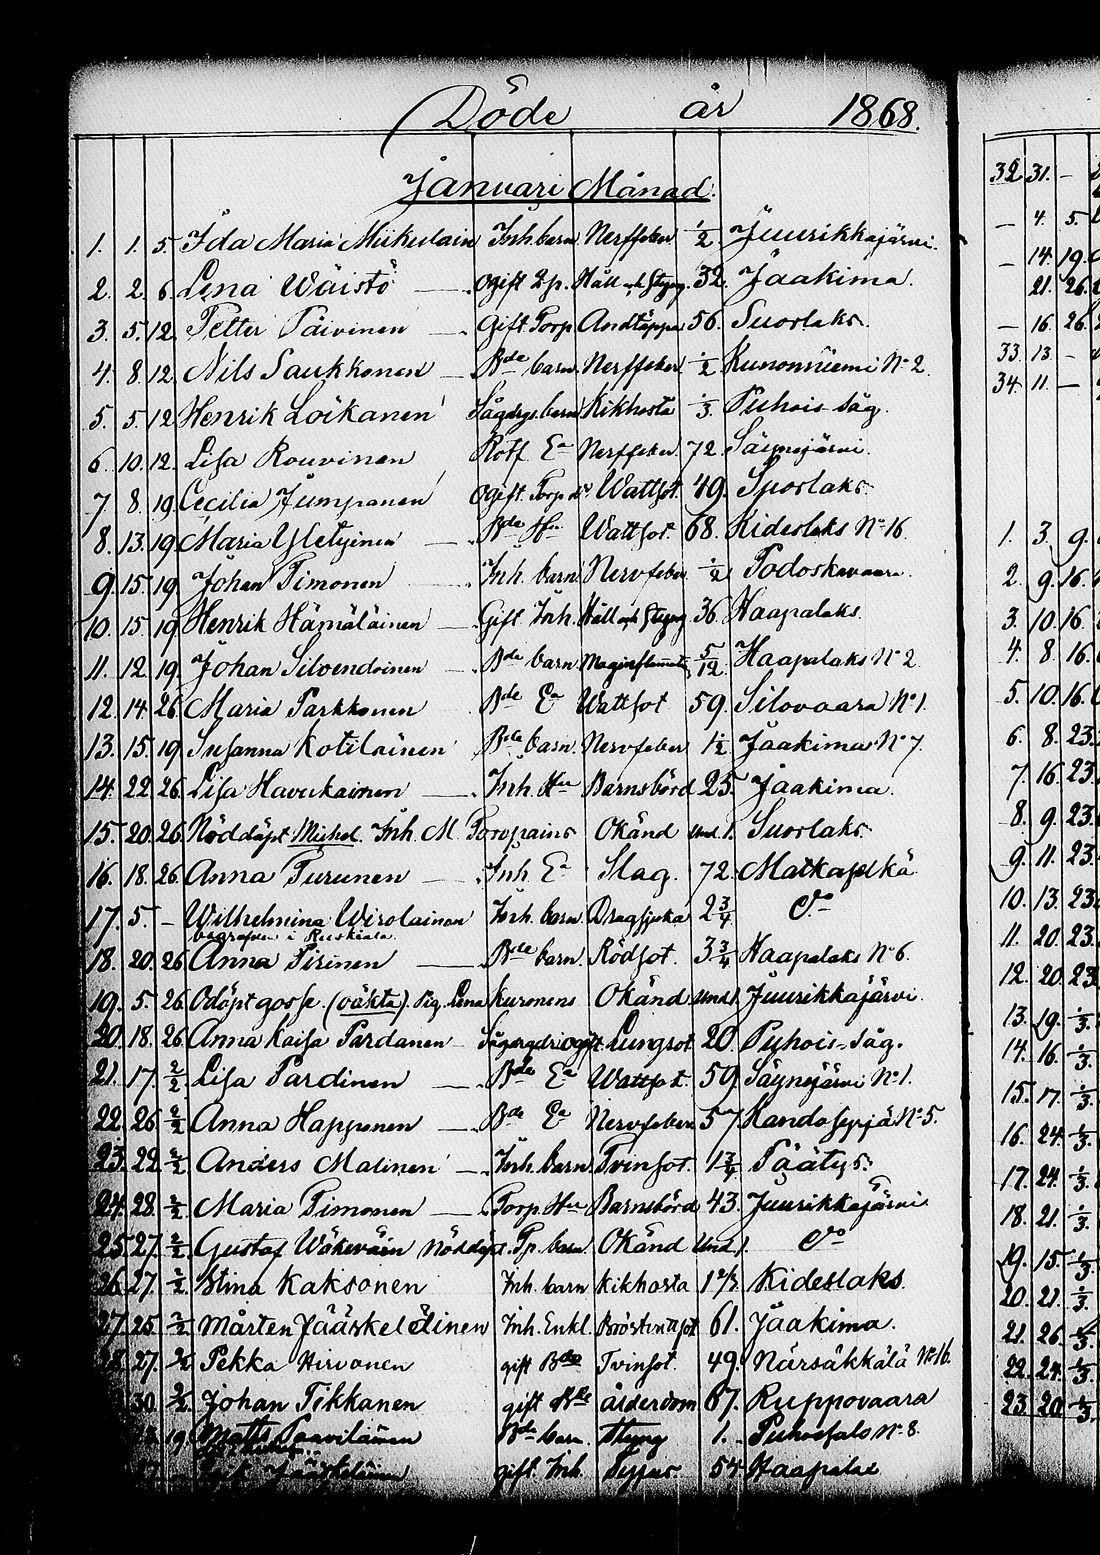 Döde år 1868.
Januari Månad.
1. 1. 5. Ida Maria Miikulain Inh. barn Nerffeber ½ Juurikkajärvi.
2. 2. 6. Lena Wäistö Ogift Håll och Styng 32. Jaakima.
3. 5. 12. Petter Päivinen Gift Torp. Andtäppa 56. Suorlaks.
4. 8. 12. Nils Saukkonen Bde barn Nerffeber. ½ Kunonniemi No 2.
5. 5. 12. Henrik Loikanen barn Kikhosta ⅓. Puhois såg.
6. 10. 12. Lisa Rouvinen Rotf. Ea Nerffeber. 72. Säynejärvi.
7. 8. 19. Cecilia Jumpanen Ogift. Torp. Wattsot. 49. Suorlaks.
8. 13. 19. Maria Yletyinen Bde Hu Wattsot. 68. Kideslaks No 16.
9. 15. 19. Johan Timonen Inh. barn Nervfeber ½ Potoskavaara.
10. 15. 19. Henrik Hämäläinen Gift Inh. Håll och Styng 36. Haapalaks.
11. 12. 19. Johan Silvendoinen Bde barn 5/12. Haapalaks No 2
12. 14. 26. Maria Parkkonen Bde Ea Wattsot 59. Silovaara No 1.
13. 15. 19. Susanna Kotilainen Bde barn. Nervfeber 1½ Jaakima No 7.
14. 22. 26. Lisa Havukainen Inh. Hu Barnsbörd 25. Jaakima.
15. 20. 26. Nöddöpt Michel. Inh. M. Torvpains Okänd und. 1. Suorlaks.
16. 18. 26. Anna Turunen Inh. Ea Slag. 72. Matkaselkä
17. 5. – Wilhelmina Wirolainen Inh. barn. Dragsjuka 2¾ Do
begrafven i Ruskiala.
18. 20. 26. Anna Pirinen Bde barn. Rödsot. 3¾ Haapalaks No 6.
19. 5. 26. Odöpt gosse. (oäkta). Pig. Lena Kuronens Okänd und 1. Juurikkajärvi.
20. 18. 26. Anna Kaisa Pardanen ogift Lungsot 20. Puhois-såg.
21. 17. 2/2. Lisa Pardinen Bde Ea Wattsot. 59. Säynejärvi No 1.
22. 26. 2/2. Anna Happonen Bde Ea Nervfeber 57. No 5.
23. 22. 2/2. Anders Malinen Inh. barn Tvinsot. 1¾. Päätys.
24. 28. 2/2. Maria Timonen Torp. Hu Barnsbörd 43. Juurikkajärvi
25. 27. 2/2. Gustaf Wäkeväin Nöddöpt. Tp. barn Okänd Und 1. Do
26. 27. 2/2. Stina Kaksonen Inh. barn Kikhosta Kideslaks.
27. 25. 2/2. Mårten Jääskeläinen Inh. Enkl. 61. Jaakima.
28. 27. 2/2. Pekka Hirvonen gift Bde Tvinsot. 49. Närsäkkälä No 16.
30. 2/2. Johan Tikkanen gift ålderdom 67. Ruppovaara
19. Matts Paavilainen Bde barn Styng 1. No 8.
Jääskeläinen gift. Inh. 54
32 31. –
– 4. 5.
– 14. 19.
21. 26.
– 16. 26.
33. 13. –
34. 11. –
1. 3. 9.
2. 9. 16.
3. 10. 16.
4. 8. 16.
5. 10. 16.
6. 8. 23.
7. 16. 23.
8. 9. 23.
9. 11. 23.
10. 13. 23.
11. 20. 23.
12. 20. 23.
13. 19. 1/3.
14. 16. 1/3.
15. 17. 1/3.
16. 24. 1/3.
17. 24. 1/3.
18. 21. 1/3.
19. 15. 1/3.
20. 21. 1/3.
21. 26. 1/3.
22. 24. 1/3.
23. 20. 1/3.